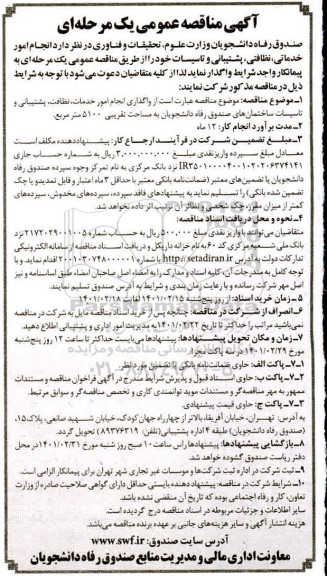 آگهی مناقصه عمومی یک مرحله‌ای
صندوق رفاه دانشجویان وزارت علوم، تحقیقات و فناوری در نظر دارد انجام امور
خدماتی، نظافتی، پشتیبانی و تاسیسات خود را از طریق مناقصه عمومی یک مرحله‌ای به
پیمانکار واجد شرایط واگذار نماید لذا از کلیه متقاضیان دعوت می‌شود با توجه به شرایط
ذیل در مناقصه مذکور شرکت نمایند:
۱-موضوع مناقصه: موضوع مناقصه عبارت است از واگذاری انجام امور خدمات، نظافت، پشتیبانی و
تاسیسات ساختمان‌های صندوق رفاه دانشجویان به مساحت تقریبی ۵۱۰۰ متر مربع.
۲-مدت برآورد انجام کار: ۱۲ ماه
۳-مبلغ تضمین شرکت در فرآیند ارجاع کار: پیشنهاددهنده مکلف است
معادل مبلغ سپرده واریز نقدی مبلغ ۳,۰۰۰,۰۰۰,۰۰۰ ریال به شماره حساب جاری
نزد بانک مرکزی به نام تمرکز وجوه سپرده صندوق رفاه
دانشجویان یا تضمین‌های معتبر (ضمانت‌نامه بانکی معتبر با حداقل ۳ ماه اعتبار و قابل تمدید و یا چک
تضمین شده بانکی) را تسلیم نماید به پیشنهادهای فاقد سپرده، سپرده‌های مخدوش، سپرده‌های
کمتر از میزان مقرر، چک شخصی و نظایر آن ترتیب اثر داده نخواهد شد.
۴-نحوه و محل دریافت اسناد مناقصه:
متقاضیان می‌توانند با واریز نقدی مبلغ ۵۰۰,۰۰۰ ریال به حساب شماره ۲۱۷۲۰۲۹۰۰۱۰۰۵ نزد
بانک ملی شعبه مرکزی کد ۶۰ به نام خزانه داری کل و دریافت اسناد مناقصه از سامانه الکترونیکی
تدارکات دولت به آدرس http://setadiran.ir با شماره ۲۰۰۱۰۰۳۰۷۴۸۰۰۰۰۰۱ اقدام نمایند با
توجه کامل به مندرجات آن، کلیه اسناد و مدارک را به امضاء اصل صاحبان امضاء طبق اساسنامه و نیز
اصل مهر شرکت رسانده و با رعایت زمان بندی و شرایط به آدرس صندوق تسلیم نمایند.
۵-زمان خرید اسناد: از روز پنج‌شنبه ۱۴۰۲/۰۲/۱۵ لغایت ۱۴۰۱/۰۲/۱۸
۶-انصراف از شرکت در مناقصه: چنانچه پس از خرید اسناد مناقصه مایل به شرکت در مناقصه
نمی‌باشید مراتب را حداکثر تا تاریخ ۱۴۰۱/۰۲/۲۲ به مدیریت امور اداری و پشتیبانی اطلاع دهید.
۷-زمان و مکان تحویل پیشنهادها: پیشنهادها می‌بایست حداکثر تا ساعت ۱۲ روز پنج‌شنبه
مورخ ۱۴۰۱/۰۲/۲۹ در سه پاکت مجزا.
۷-۱-پاکت الف: حاوی ضمانت‌نامه بانکی یا تضمین مورد نظر.
۷-۲-پاکت ب: حاوی اسناد قبول و پذیرش شرایط مندرج در آگهی فراخوان مناقصه و مستندات
ممهور به مهر مناقصه‌گر و مستندات موید توانمندی کاری و تخصص مناقصه‌گر و سوابق مرتبط.
۷-۳-پاکت ج: حاوی قیمت پیشنهادی.
به آدرس: تهران، خیابان آفریقا، بالاتر از چهارراه جهان کودک، خیابان شهید صانعی، پلاک ۱۵،
(صندوق رفاه دانشجویان) طبقه ۴ اداره پشتیبانی (تلفن: ۸۹۳۷۶۳۱۹) تحویل گردد.
۸-بازگشایی پیشنهادها: پیشنهادها راس ساعت ۱۰ صبح روز شنبه مورخ ۱۴۰۱/۰۲/۳۱ در محل
دفتر ریاست صندوق گشوده خواهد شد.
۹-ثبت شرکت در اداره ثبت شرکت‌ها و موسسات غیر تجاری شهر تهران برای پیمانکار الزامی است.
۱۰-شرایط شرکت در مناقصه: پیشنهاد دهنده بایستی حداقل دارای گواهی صلاحیت صادره از وزارت
تعاون، کار و رفاه اجتماعی بوده که تاریخ آن منقضی نشده باشد.
سایر اطلاعات و جزئیات مربوطه در اسناد مناقصه درج گردیده است.
هزینه انتشار آگهی و سایر هزینه‌های جانبی بر عهده برنده مناقصه می‌باشد.
آدرس سایت صندوق: www.swf.ir
معاونت اداری مالی و مدیریت منابع صندوق رفاه دانشجویان